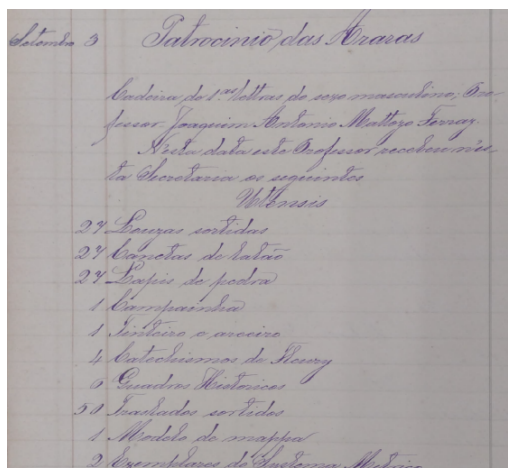 Setembro 3 Patrocinio das Araras
Cadeira de 1.as lettras do sexo masculino; Pro-
fessor Joaquim Antonio Mattozo Ferraz.
Nesta data este Professor recebeu nes-
ta Secretaria os seguintes
Utensis
24 Louzas sortidas
24 Canetas de latão
24 Lapis de pedra
1 Campainha
1 Tinteiro e areeiro
4 Catechismos de Fleury
6 Quadros Historicos
50 Traslados sortidos
1 Modelo de mappa
2 Exemplares do Systema Metrico